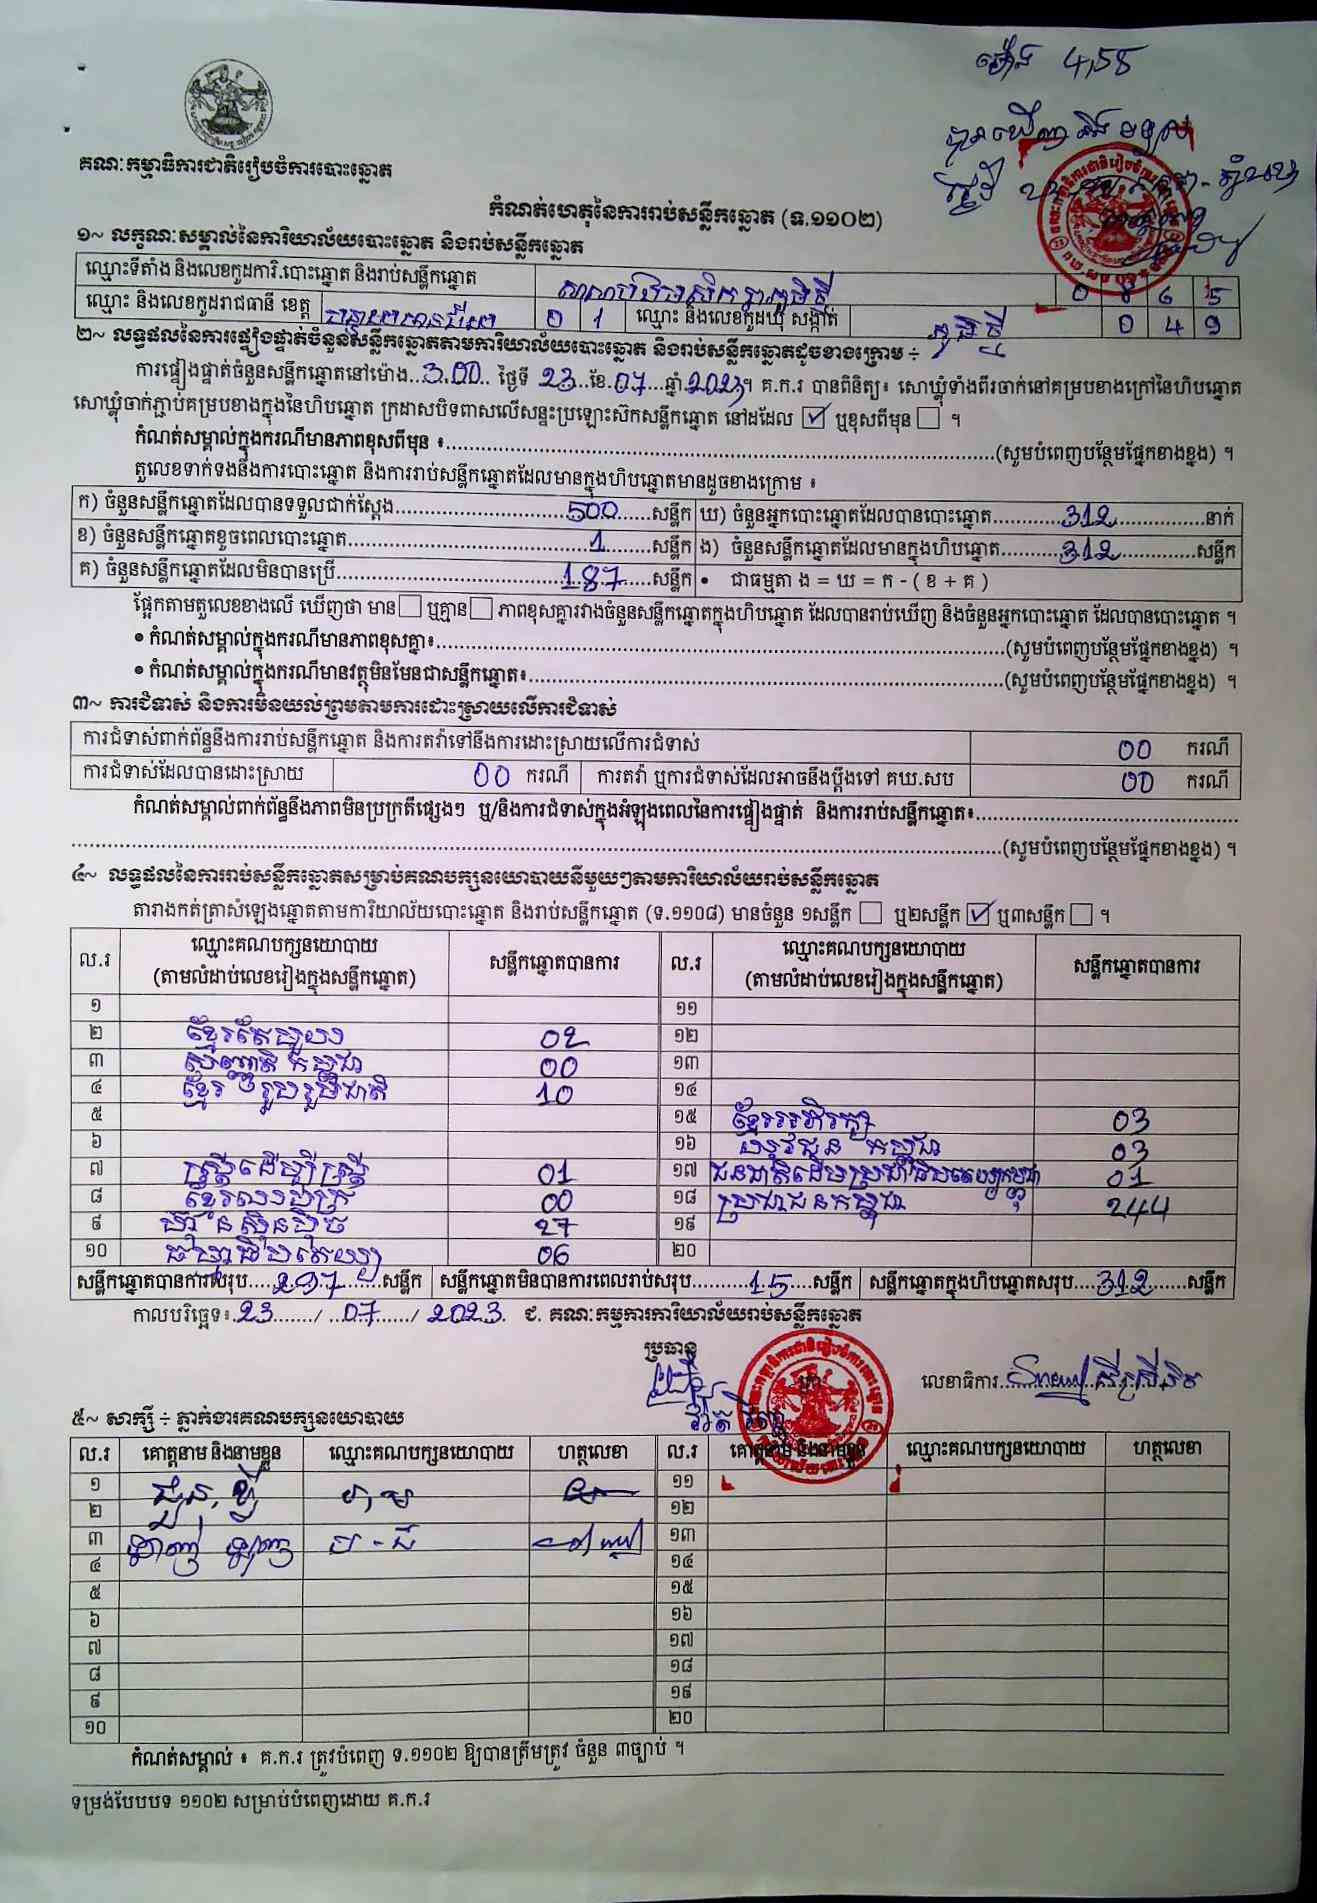 ម៉ោង 4,58
គណៈកម្មាធិការជាតិរៀបចំការបោះឆ្នោត
កំណត់ហេតុនៃការរាប់សន្លឹកឆ្នោត (ទ.១១០២)
១~ លក្ខណៈសម្គាល់នៃការិយាល័យបោះឆ្នោត និងរាប់សន្លឹកឆ្នោត
ឈ្មោះទីតាំង និងលេខកូដការិ.បោះឆ្នោត និងរាប់សន្លឹកឆ្នោត 0 8 6 5
ឈ្មោះ និងលេខកូដរាជធានី ខេត្ត បន្ទាយមានជ័យ 0 1 ឈ្មោះ និងលេខកូដឃុំ សង្កាត់ 0 4 9
២~ លទ្ធផលនៃការផ្ទៀងផ្ទាត់ចំនួនសន្លឹកឆ្នោតតាមការិយាល័យបោះឆ្នោត និងរាប់សន្លឹកឆ្នោតដូចខាងក្រោម ÷
ការផ្ទៀងផ្ទាត់ចំនួនសន្លឹកឆ្នោតនៅម៉ោង 3.00 ថ្ងៃទី 23 ខែ 07 ឆ្នាំ 2023។ គ.ក.រ បានពិនិត្យ៖ សោឃ្លុំទាំងពីរចាក់នៅគម្របខាងក្រៅនៃហិបឆ្នោត
សោឃ្លុំចាក់ភ្ជាប់គម្របខាងក្នុងនៃហិបឆ្នោត ក្រដាសបិទពាសលើសន្ទះប្រឡោះស៊កសន្លឹកឆ្នោត នៅដដែល ☑ ឬខុសពីមុន ☐ ។
កំណត់សម្គាល់ក្នុងករណីមានភាពខុសពីមុន ៖ (សូមបំពេញបន្ថែមផ្នែកខាងខ្នង) ។
តួលេខទាក់ទងនឹងការបោះឆ្នោត និងការរាប់សន្លឹកឆ្នោតដែលមានក្នុងហិបឆ្នោតមានដូចខាងក្រោម ៖
ក) ចំនួនសន្លឹកឆ្នោតដែលបានទទួលជាក់ស្តែង 500 សន្លឹក ឃ) ចំនួនអ្នកបោះឆ្នោតដែលបានបោះឆ្នោត 312 នាក់
ខ) ចំនួនសន្លឹកឆ្នោតខូចពេលបោះឆ្នោត 1 សន្លឹក ង) ចំនួនសន្លឹកឆ្នោតដែលមានក្នុងហិបឆ្នោត 312 សន្លឹក
គ) ចំនួនសន្លឹកឆ្នោតដែលមិនបានប្រើ 187 សន្លឹក • ជាធម្មតា ង = ឃ = ក - ( ខ + គ )
ផ្អែកតាមតួលេខខាងលើ ឃើញថា មាន ☐ ឬគ្មាន ☐ ភាពខុសគ្នារវាងចំនួនសន្លឹកឆ្នោតក្នុងហិបឆ្នោត ដែលបានរាប់ឃើញ និងចំនួនអ្នកបោះឆ្នោត ដែលបានបោះឆ្នោត ។
• កំណត់សម្គាល់ក្នុងករណីមានភាពខុសគ្នា៖ (សូមបំពេញបន្ថែមផ្នែកខាងខ្នង) ។
• កំណត់សម្គាល់ក្នុងករណីមានវត្ថុមិនមែនជាសន្លឹកឆ្នោត៖ (សូមបំពេញបន្ថែមផ្នែកខាងខ្នង) ។
៣~ ការជំទាស់ និងការមិនយល់ព្រមតាមការដោះស្រាយលើការជំទាស់
ការជំទាស់ពាក់ព័ន្ធនឹងការរាប់សន្លឹកឆ្នោត និងការតវ៉ាទៅនឹងការដោះស្រាយលើការជំទាស់ 00 ករណី
ការជំទាស់ដែលបានដោះស្រាយ 00 ករណី ការតវ៉ា ឬការជំទាស់ដែលអាចនឹងប្តឹងទៅ គឃ.សប 00 ករណី
កំណត់សម្គាល់ពាក់ព័ន្ធនឹងភាពមិនប្រក្រតីផ្សេងៗ ឬ/និងការជំទាស់ក្នុងអំឡុងពេលនៃការផ្ទៀងផ្ទាត់ និងការរាប់សន្លឹកឆ្នោត៖
(សូមបំពេញបន្ថែមផ្នែកខាងខ្នង) ។
៤~ លទ្ធផលនៃការរាប់សន្លឹកឆ្នោតសម្រាប់គណបក្សនយោបាយនីមួយៗតាមការិយាល័យរាប់សន្លឹកឆ្នោត
តារាងកត់ត្រាសំឡេងឆ្នោតតាមការិយាល័យបោះឆ្នោត និងរាប់សន្លឹកឆ្នោត (ទ.១១០៨) មានចំនួន ១សន្លឹក ☐ ឬ២សន្លឹក ☑ ឬ៣សន្លឹក ☐ ។
ល.រ ឈ្មោះគណបក្សនយោបាយ (តាមលំដាប់លេខរៀងក្នុងសន្លឹកឆ្នោត) សន្លឹកឆ្នោតបានការ ល.រ ឈ្មោះគណបក្សនយោបាយ (តាមលំដាប់លេខរៀងក្នុងសន្លឹកឆ្នោត) សន្លឹកឆ្នោតបានការ
១ ១១
២ ខ្មែរតែមួយ 02 ១២
៣ សញ្ជាតិកម្ពុជា 00 ១៣
៤ ខ្មែររួបរួមជាតិ 10 ១៤
៥ ១៥ ខ្មែរអភិរក្ស 03
៦ ១៦ យុវជនកម្ពុជា 03
៧ ស្ត្រីដើម្បីស្ត្រី 01 ១៧ ជនជាតិដើមប្រជាធិបតេយ្យកម្ពុជា 01
៨ ខ្មែរឈប់ក្រ 00 ១៨ ប្រជាជនកម្ពុជា 244
៩ ហ៊្វុនស៊ិនប៉ិច 27 ១៩
១០ ធម្មាធិបតេយ្យ 06 ២០
សន្លឹកឆ្នោតបានការសរុប 297 សន្លឹក សន្លឹកឆ្នោតមិនបានការពេលរាប់សរុប 15 សន្លឹក សន្លឹកឆ្នោតក្នុងហិបឆ្នោតសរុប 312 សន្លឹក
កាលបរិច្ឆេទ៖ 23 / 07 / 2023. ជ. គណៈកម្មការការិយាល័យរាប់សន្លឹកឆ្នោត
ប្រធាន
លេខាធិការ
៥~ សាក្សី ÷ ភ្នាក់ងារគណបក្សនយោបាយ
ល.រ គោត្តនាម និងនាមខ្លួន ឈ្មោះគណបក្សនយោបាយ ហត្ថលេខា ល.រ គោត្តនាម និងនាមខ្លួន ឈ្មោះគណបក្សនយោបាយ ហត្ថលេខា
១ ១១
២ ១២
៣ ១៣
៤ ១៤
៥ ១៥
៦ ១៦
៧ ១៧
៨ ១៨
៩ ១៩
១០ ២០
កំណត់សម្គាល់ ៖ គ.ក.រ ត្រូវបំពេញ ទ.១១០២ ឱ្យបានត្រឹមត្រូវ ចំនួន ៣ច្បាប់ ។
ទម្រង់បែបបទ ១១០២ សម្រាប់បំពេញដោយ គ.ក.រ